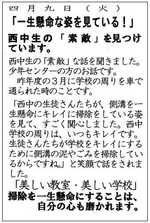 四月九日(火)
「一生懸命な姿を見ている！」
西中生の「素敵」を見つけ
ています。
西中生の「素敵」な話を聞きました。
少年センターの方のお話です。
昨年度の３月に学校の周りを車で
通られた時のことです。
「西中の生徒さんたちが、側溝を一
生懸命にキレイに掃除をしている姿
を見て、すごく関心しました。西中
学校の周りは、いつもキレイです。
生徒さんたちが学校をキレイにする
ために側溝の泥やごみを掃除してい
るからですね。」と笑顔で話をされま
した。
「美しい教室・美しい学校」
掃除を一生懸命にすることは、
自分の心も磨かれます。